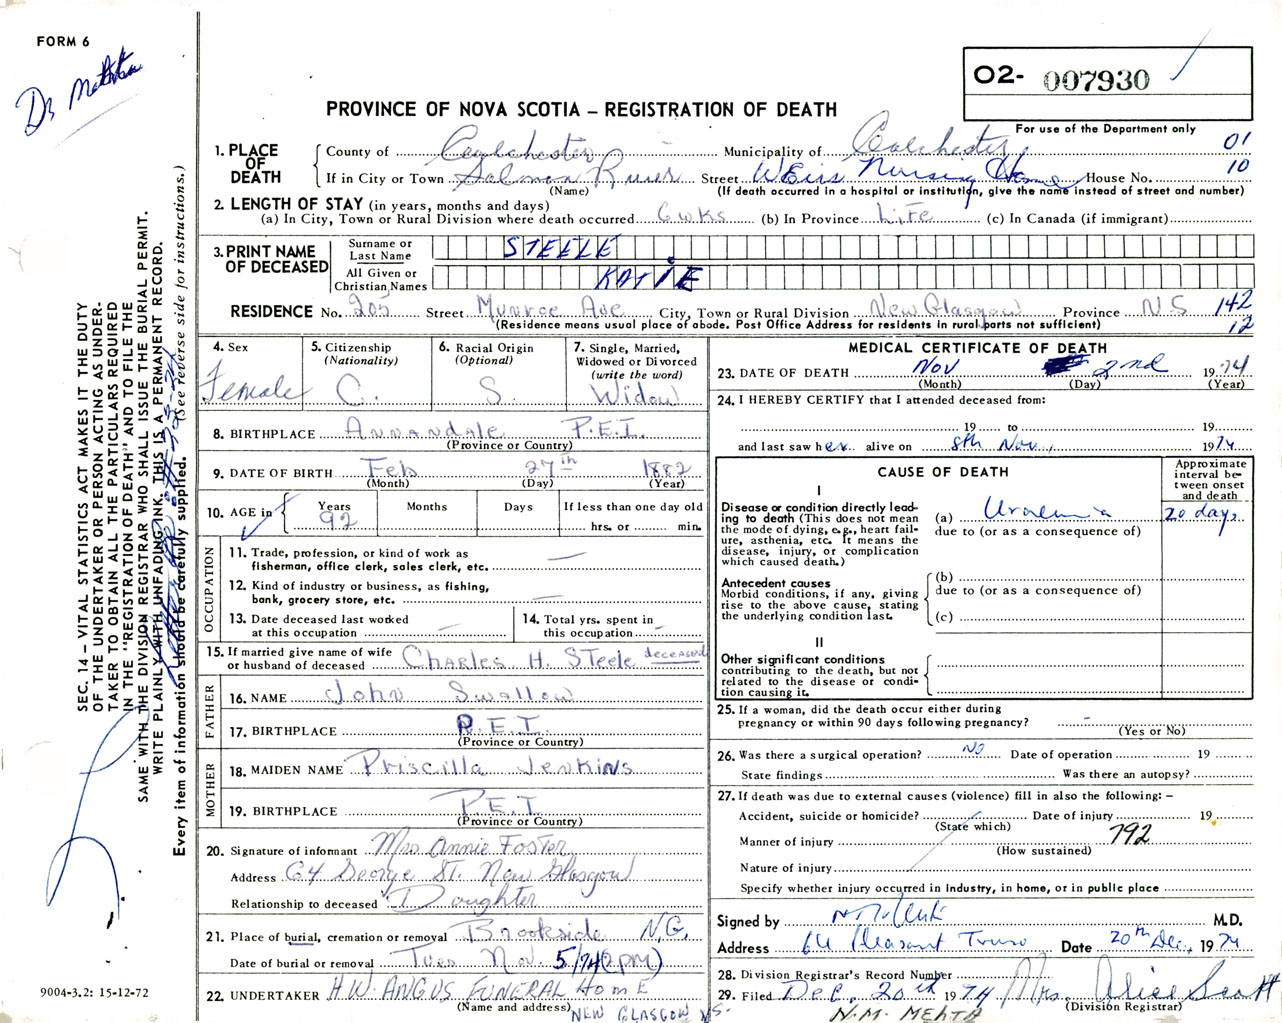 FORM 6
O2- 007930
PROVINCE OF NOVA SCOTIA – REGISTRATION OF DEATH
For use of the Department only
01
10
1. PLACE OF DEATH
County of Colchester Municipality of Colchester
If in City or Town Salmon River Street Weirs Nursing Home House No.
(Name) (If death occurred in a hospital or institution, give the name instead of street and number)
2. LENGTH OF STAY (in years, months and days)
(a) In City, Town or Rural Division where death occurred 6 wks (b) In Province Life (c) In Canada (if immigrant)
3. PRINT NAME OF DECEASED
Surname or Last Name STEELE
All Given or Christian Names KATIE
RESIDENCE No. 205 Street Munroe Ave City, Town or Rural Division New Glasgow Province N S 142
(Residence means usual place of abode. Post Office Address for residents in rural parts not sufficient) 12
4. Sex Female
5. Citizenship (Nationality) C.
6. Racial Origin (Optional) S.
7. Single, Married, Widowed or Divorced (write the word) Widow
8. BIRTHPLACE Annandale P.E.I.
(Province or Country)
9. DATE OF BIRTH Feb 27th 1882
(Month) (Day) (Year)
10. AGE in Years Months Days If less than one day old
92 hrs. or min.
OCCUPATION
11. Trade, profession, or kind of work as fisherman, office clerk, sales clerk, etc. —
12. Kind of industry or business, as fishing, bank, grocery store, etc. —
13. Date deceased last worked at this occupation —
14. Total yrs. spent in this occupation –
15. If married give name of wife or husband of deceased Charles H. Steele deceased
FATHER
16. NAME John Swallow
17. BIRTHPLACE P.E.I.
(Province or Country)
MOTHER
18. MAIDEN NAME Priscilla Jenkins
19. BIRTHPLACE P.E.I
(Province or Country)
20. Signature of informant Mrs Annie Foster
Address 64 George St. New Glasgow
Relationship to deceased Daughter
21. Place of burial, cremation or removal Brookside N.G.
Date of burial or removal Tues Nov. 5/74 (2pm)
22. UNDERTAKER H.W. ANGUS FUNERAL HOME
(Name and address) NEW GLASGOW NS.
MEDICAL CERTIFICATE OF DEATH
23. DATE OF DEATH Nov 2nd 1974
(Month) (Day) (Year)
24. I HEREBY CERTIFY that I attended deceased from:
19 to 19
and last saw her alive on 8th Nov, 1974
CAUSE OF DEATH
Approximate interval between onset and death
I
Disease or condition directly leading to death (This does not mean the mode of dying, e.g., heart failure, asthenia, etc. It means the disease, injury, or complication which caused death.)
(a) Uraemia 20 days
due to (or as a consequence of)
Antecedent causes
Morbid conditions, if any, giving rise to the above cause, stating the underlying condition last.
(b)
due to (or as a consequence of)
(c)
II
Other significant conditions
contributing to the death, but not related to the disease or condition causing it.
25. If a woman, did the death occur either during pregnancy or within 90 days following pregnancy? –
(Yes or No)
26. Was there a surgical operation? No Date of operation 19
State findings Was there an autopsy?
27. If death was due to external causes (violence) fill in also the following: –
Accident, suicide or homicide? Date of injury 19
(State which)
Manner of injury 792
(How sustained)
Nature of injury
Specify whether injury occurred in industry, in home, or in public place
Signed by M.D.
Address 64 Pleasant Truro Date 20th Dec, 1974
28. Division Registrar's Record Number
29. Filed Dec. 20th 1974 Mrs. Alice Scott
(Division Registrar)
N.M. MEHTA
SEC. 14 – VITAL STATISTICS ACT MAKES IT THE DUTY
OF THE UNDERTAKER OR PERSON ACTING AS UNDER-
TAKER TO OBTAIN ALL THE PARTICULARS REQUIRED
IN THE "REGISTRATION OF DEATH" AND TO FILE THE
SAME WITH THE DIVISION REGISTRAR WHO SHALL ISSUE THE BURIAL PERMIT.
WRITE PLAINLY WITH UNFADING INK. THIS IS A PERMANENT RECORD.
Every item of information should be carefully supplied. (See reverse side for instructions.)
9004-3.2: 15-12-72